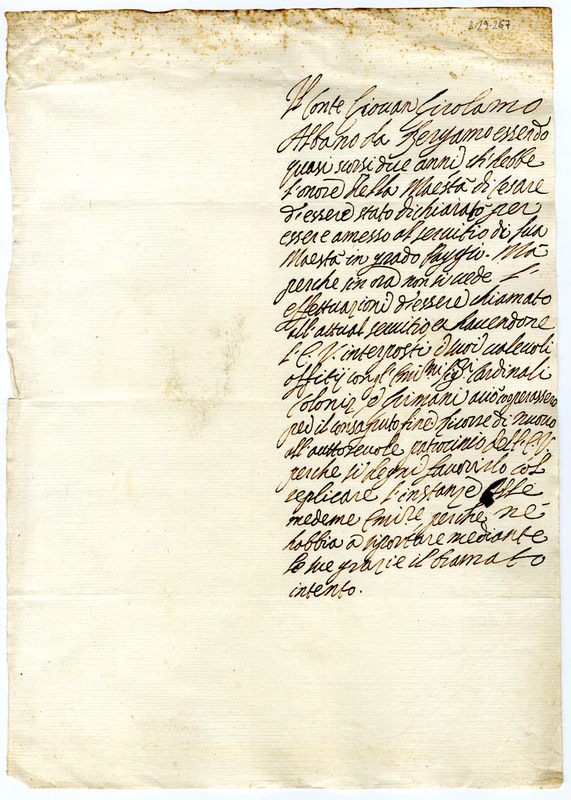 2-29-267
Il Conte Giovan Girolamo
Albano da Bergamo essendo
quasi scorsi due anni ch'hebbe
l'onore della Maestà di Cesare
d'essere stato dichiarato per
essere amesso al servitio di sua
Maestà in grado Paggio. Mà
perche sin ora non si vede l'
effettuazione d'essere chiamato
all'attual servitio, havendone
l'E.V. interposti suoi valevoli
offitij con gl'Emi Sigri Cardinali
Coloniz e Grimani acciò cooperassero
per il consaputo fine ricorre di nuovo
all'auttorevole patrocinio dell'E.V.
perche si degni favorirlo col
replicare l'instanze alle
medeme Emize perche nè
habbia à riportare mediante
le sue grazie il bramato
intento.